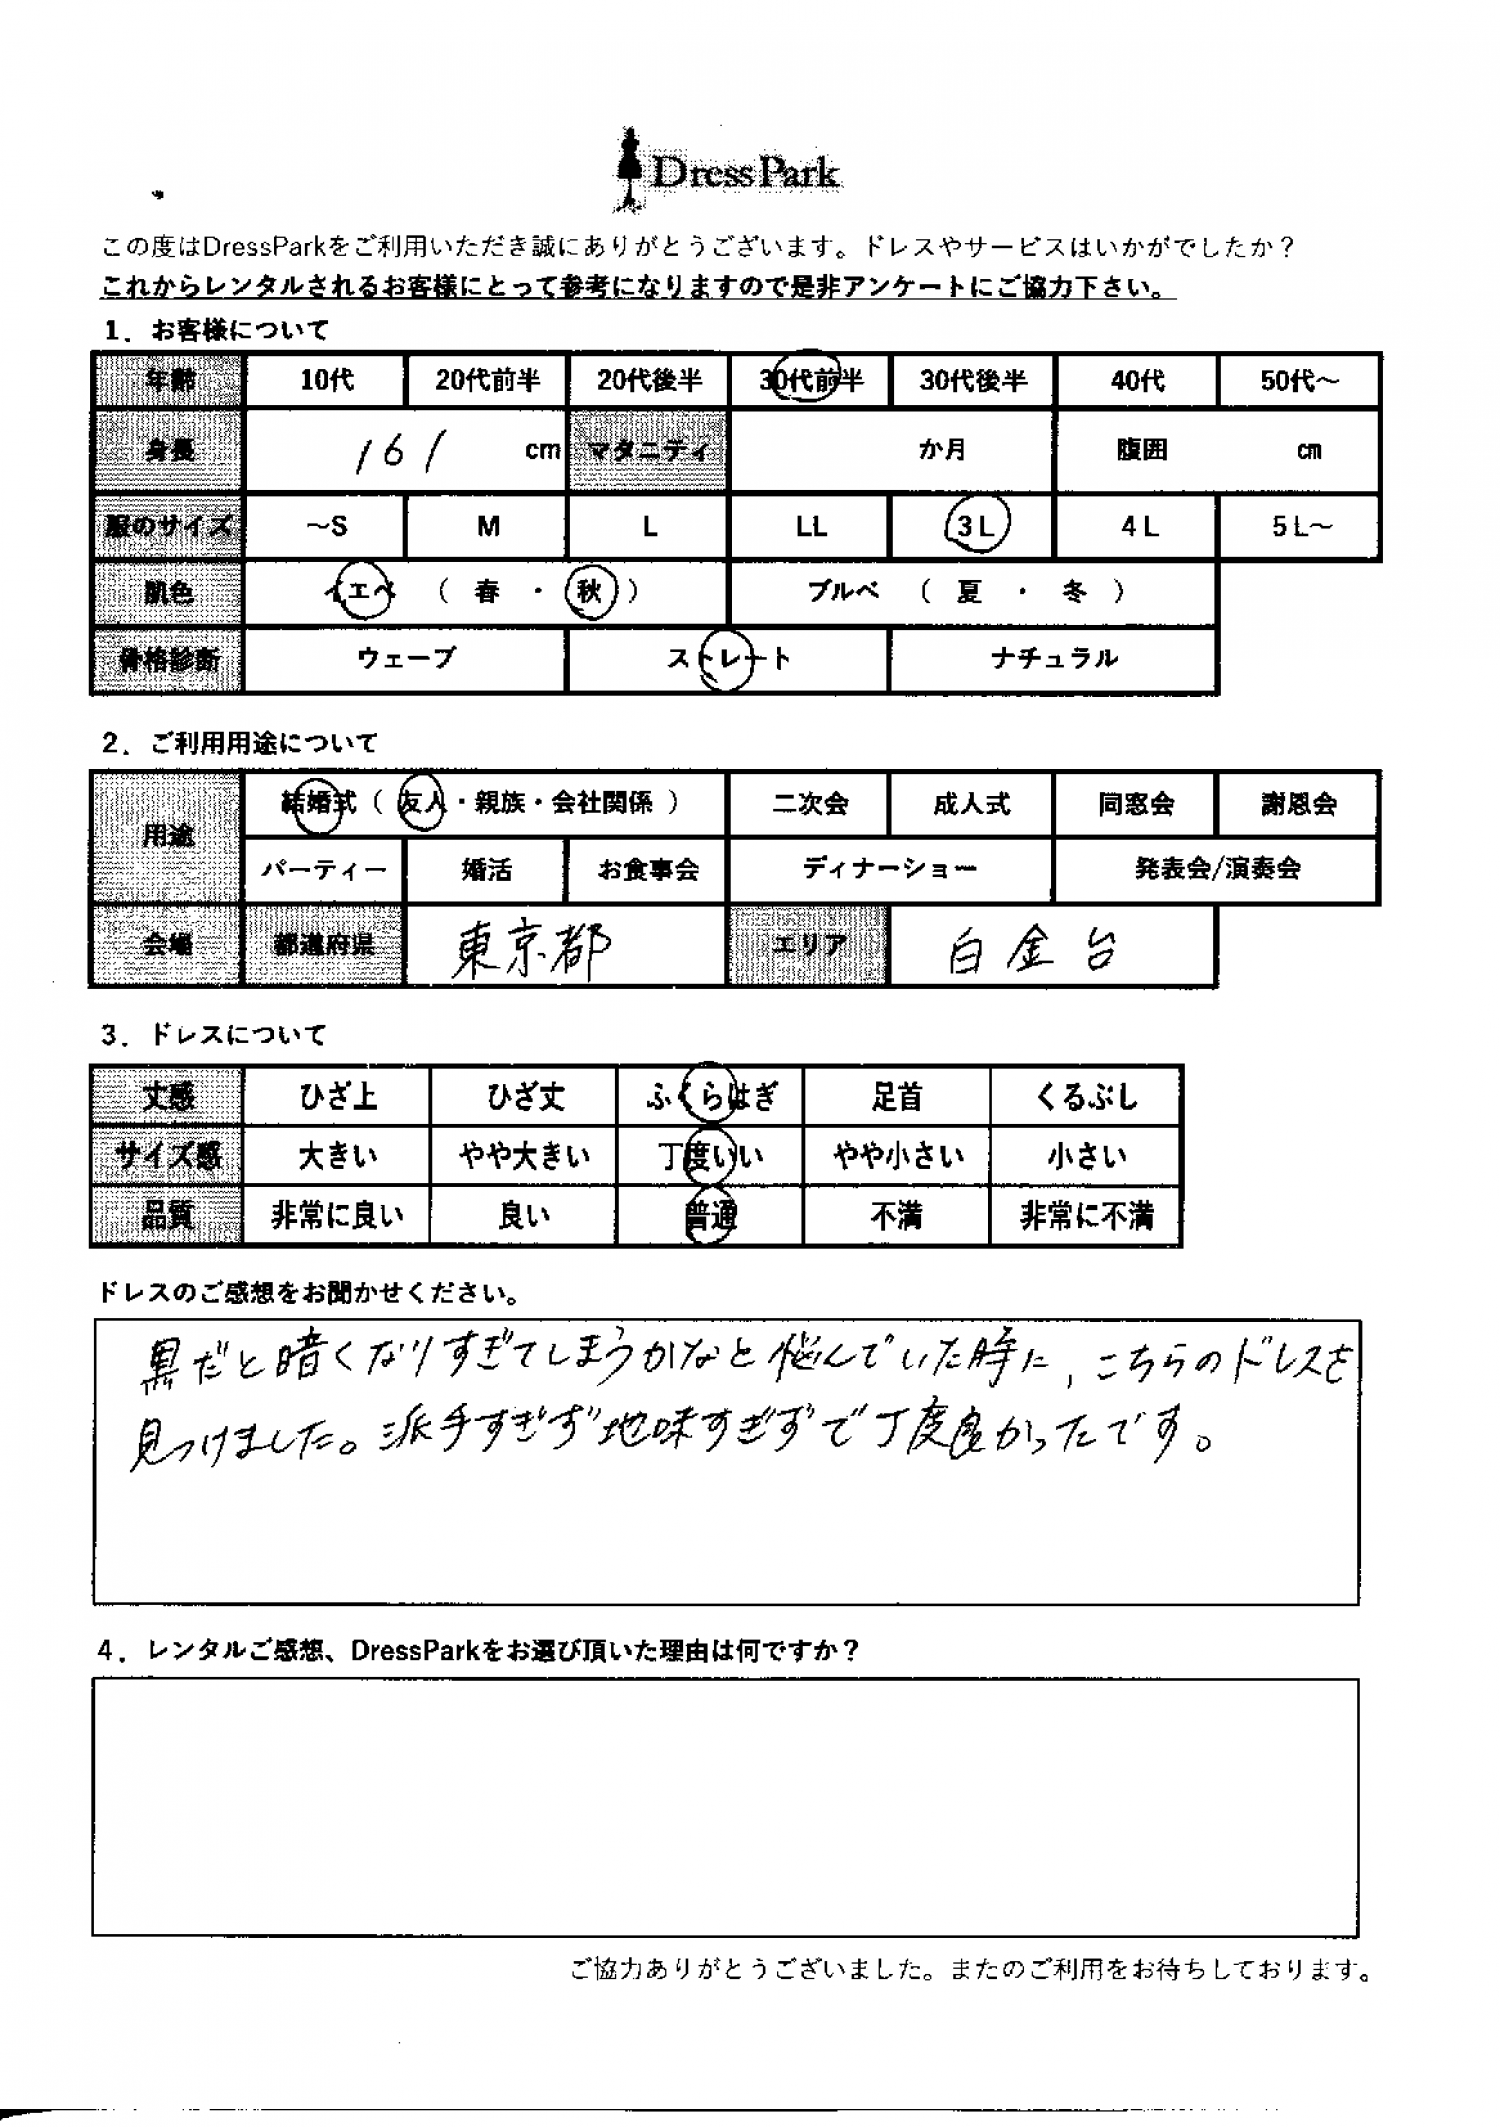 DressPark
この度はDressParkをご利用いただき誠にありがとうございます。ドレスやサービスはいかがでしたか？
これからレンタルされるお客様にとって参考になりますので是非アンケートにご協力下さい。
1．お客様について
年齢 10代 20代前半 20代後半 30代前半 30代後半 40代 50代～
身長 161 cm マタニティ か月 腹囲 ㎝
服のサイズ ～S M L LL 3L 4L 5L～
肌色 イエベ （ 春 ・ 秋 ） ブルベ （ 夏 ・ 冬 ）
骨格診断 ウェーブ ストレート ナチュラル
2．ご利用用途について
用途 結婚式（ 友人・親族・会社関係 ） 二次会 成人式 同窓会 謝恩会
パーティー 婚活 お食事会 ディナーショー 発表会/演奏会
会場 都道府県 東京都 エリア 白金台
3．ドレスについて
丈感 ひざ上 ひざ丈 ふくらはぎ 足首 くるぶし
サイズ感 大きい やや大きい 丁度いい やや小さい 小さい
品質 非常に良い 良い 普通 不満 非常に不満
ドレスのご感想をお聞かせください。
黒だと暗くなりすぎてしまうかなと悩んでいた時に，こちらのドレスを
見つけました。派手すぎず地味すぎずで丁度良かったです。
4．レンタルご感想、DressParkをお選び頂いた理由は何ですか？
ご協力ありがとうございました。またのご利用をお待ちしております。